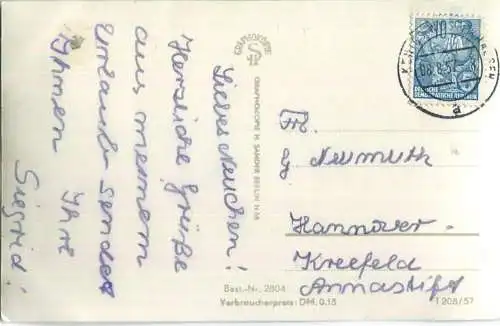 Liebes Neuchen!
Herzliche Grüße
aus meinem
Urlaub sendet
Ihnen Ihre
Siegrid!
GRAPHOKOPIE
GRAPHOKOPIE H. SANDER BERLIN N 58
10
DEUTSCHE
DEMOKRATISCHE REPUBLIK
08.8.57
a
Frl.
Neumuth
Hannover-
Kleefeld
Annastift
Best.-Nr. 2804
Verbraucherpreis: DM. 0.15
T 208/57